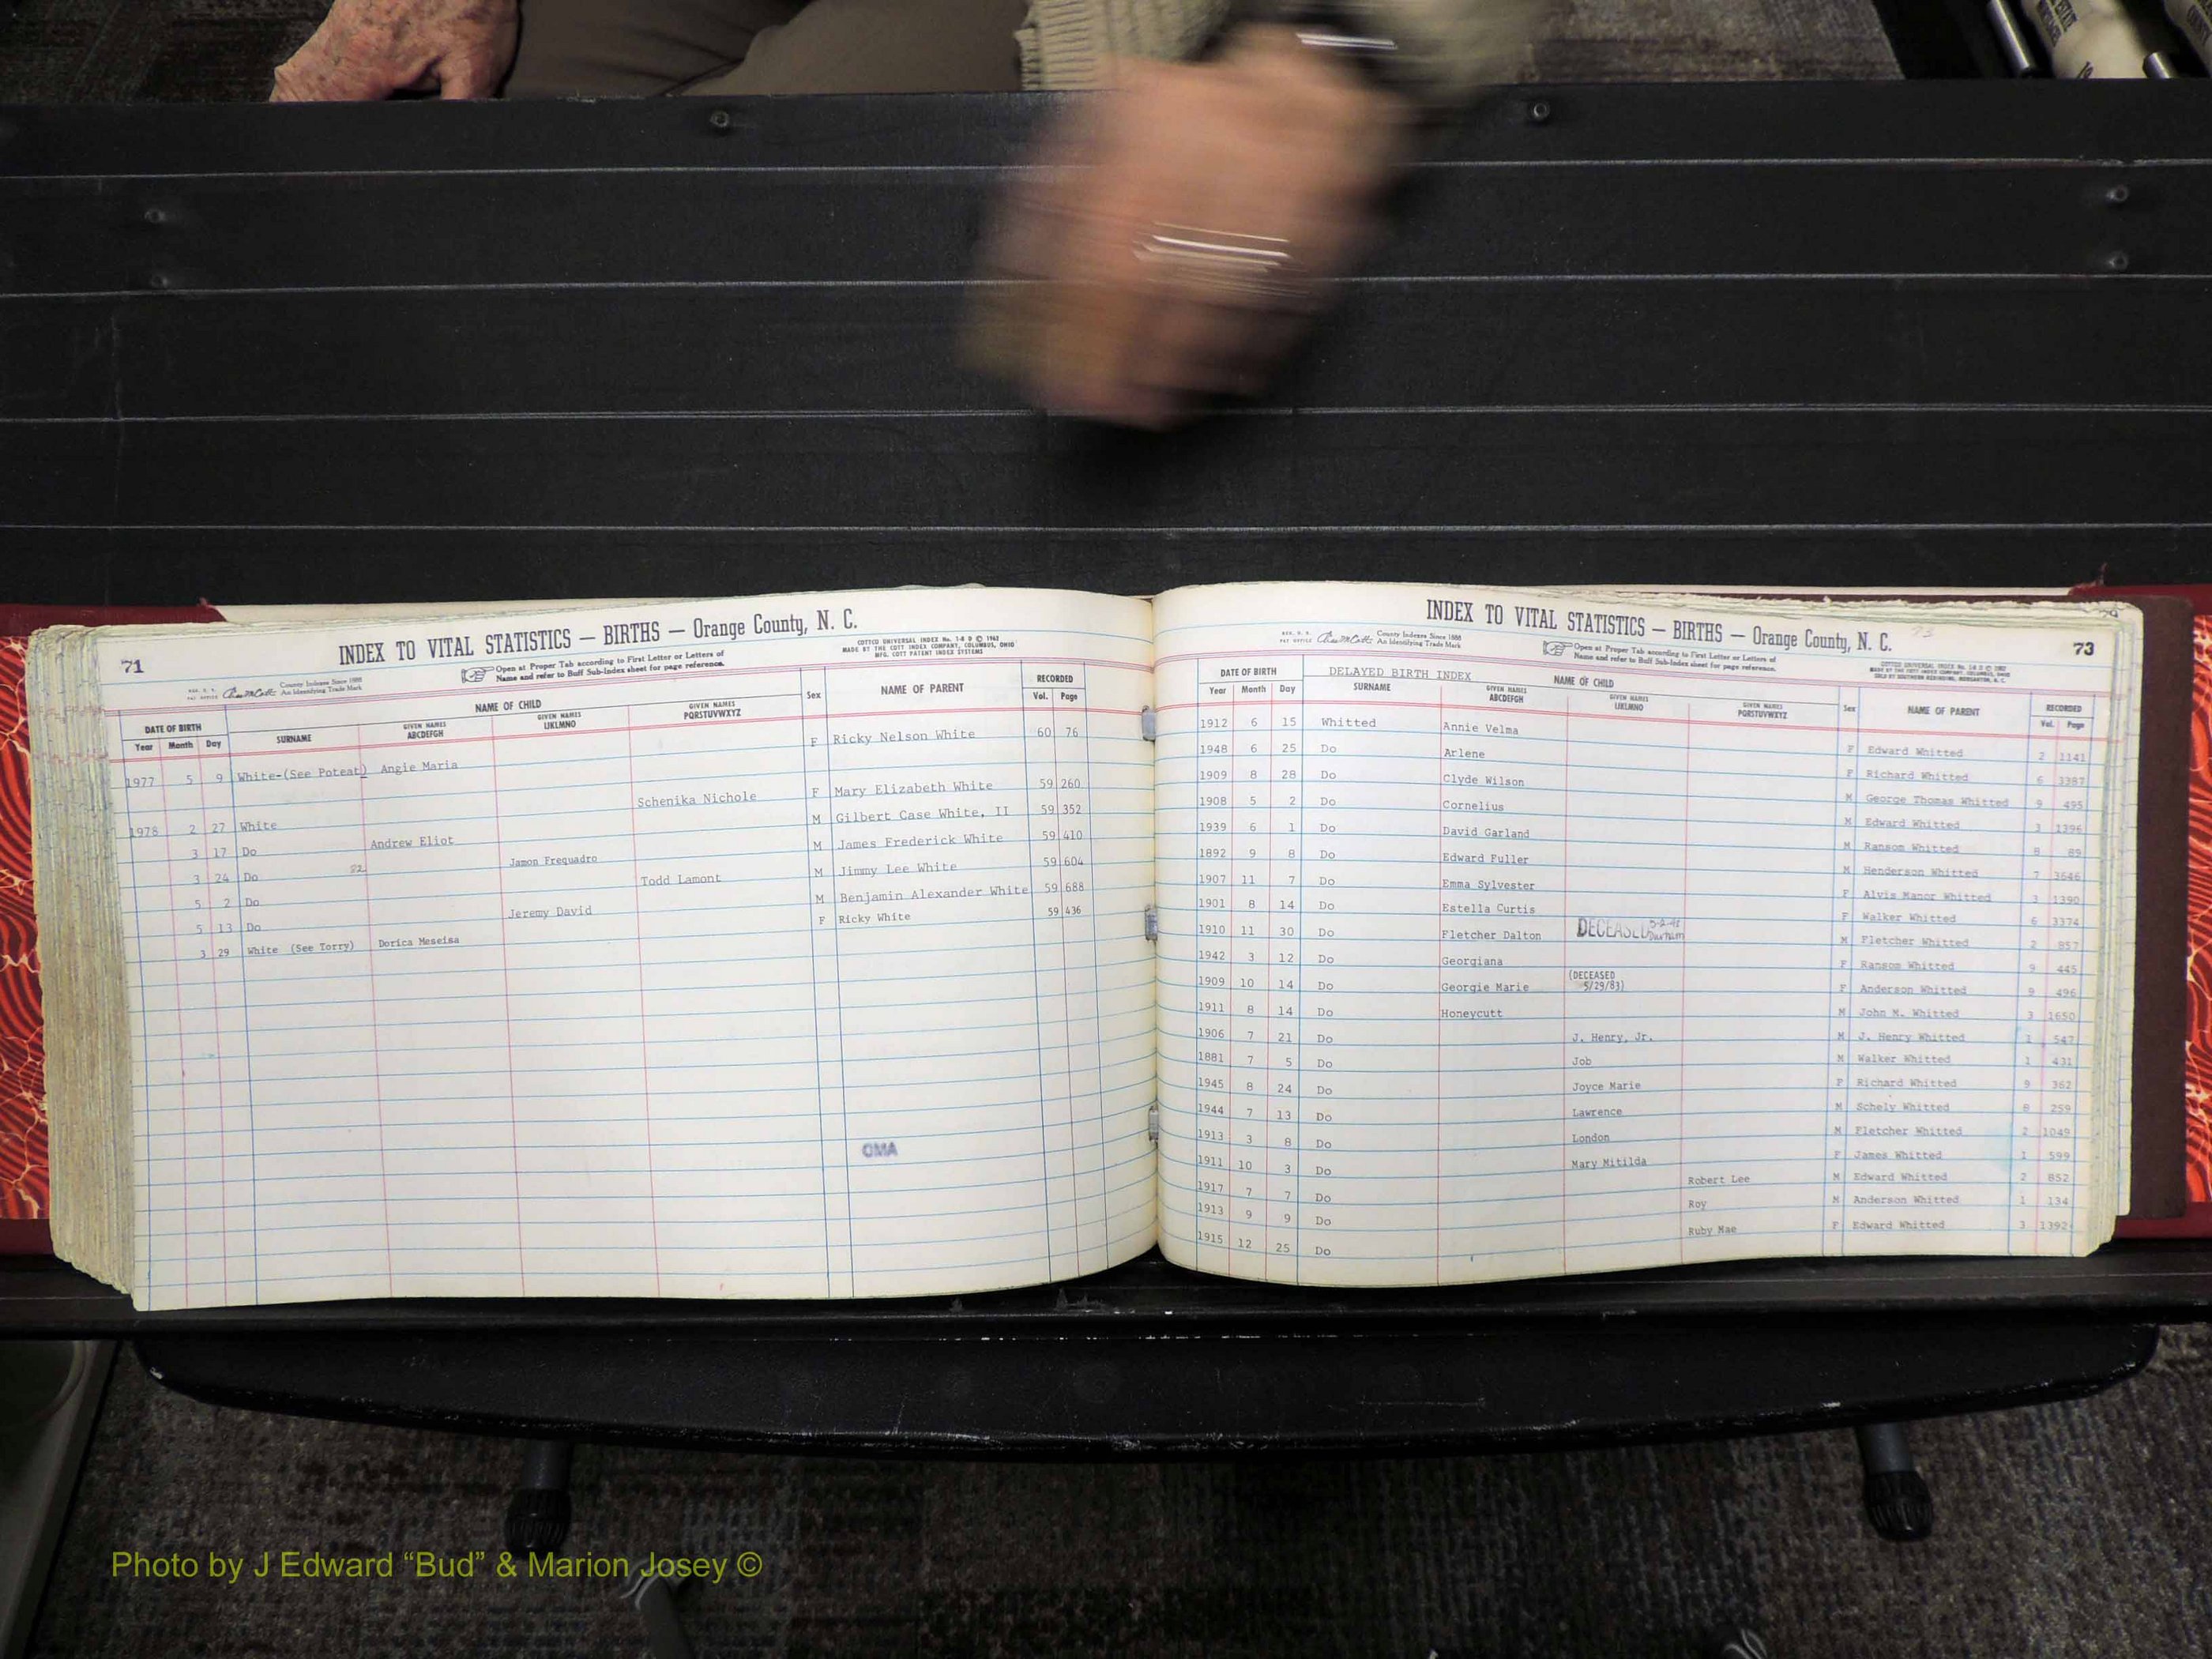 71
INDEX TO VITAL STATISTICS — BIRTHS — Orange County, N. C.
County Indexes Since 1888
An Identifying Trade Mark
Open at Proper Tab according to First Letter or Letters of
Name and refer to Buff Sub-Index sheet for page reference.
COTTCO UNIVERSAL INDEX No. 1-8 D © 1962
MADE BY THE COTT INDEX COMPANY, COLUMBUS, OHIO
MFG. COTT PATENT INDEX SYSTEMS
DATE OF BIRTH NAME OF CHILD Sex NAME OF PARENT RECORDED
Year Month Day SURNAME GIVEN NAMES ABCDEFGH GIVEN NAMES IJKLMNO GIVEN NAMES PQRSTUVWXYZ Vol. Page
1977 5 9 White-(See Poteat) Angie Maria F Ricky Nelson White 60 76
1978 2 27 White Schenika Nichole F Mary Elizabeth White 59 260
3 17 Do Andrew Eliot M Gilbert Case White, II 59 352
3 24 Do Jamon Frequadro M James Frederick White 59 410
5 2 Do Todd Lamont M Jimmy Lee White 59 604
5 13 Do Jeremy David M Benjamin Alexander White 59 688
3 29 White (See Torry) Dorica Meseisa F Ricky White 59 436
OMA
INDEX TO VITAL STATISTICS — BIRTHS — Orange County, N. C.
73
County Indexes Since 1888
An Identifying Trade Mark
Open at Proper Tab according to First Letter or Letters of
Name and refer to Buff Sub-Index sheet for page reference.
DELAYED BIRTH INDEX
DATE OF BIRTH NAME OF CHILD Sex NAME OF PARENT RECORDED
Year Month Day SURNAME GIVEN NAMES ABCDEFGH GIVEN NAMES IJKLMNO GIVEN NAMES PQRSTUVWXYZ Vol. Page
1912 6 15 Whitted Annie Velma F Edward Whitted 2 1141
1948 6 25 Do Arlene F Richard Whitted 6 3387
1909 8 28 Do Clyde Wilson M George Thomas Whitted 9 495
1908 5 2 Do Cornelius M Edward Whitted 3 1396
1939 6 1 Do David Garland M Ransom Whitted 8 89
1892 9 8 Do Edward Fuller M Henderson Whitted 7 3646
1907 11 7 Do Emma Sylvester F Alvis Manor Whitted 3 1390
1901 8 14 Do Estella Curtis F Walker Whitted 6 3374
1910 11 30 Do Fletcher Dalton DECEASED Durham M Fletcher Whitted 2 857
1942 3 12 Do Georgiana F Ransom Whitted 9 445
1909 10 14 Do Georgie Marie (DECEASED 5/29/83) F Anderson Whitted 9 496
1911 8 14 Do Honeycutt M John M. Whitted 3 1650
1906 7 21 Do J. Henry, Jr. M J. Henry Whitted 1 547
1881 7 5 Do Job M Walker Whitted 1 431
1945 8 24 Do Joyce Marie F Richard Whitted 9 362
1944 7 13 Do Lawrence M Schely Whitted 8 259
1913 3 8 Do London M Fletcher Whitted 2 1049
1911 10 3 Do Mary Mitilda F James Whitted 1 599
1917 7 7 Do Robert Lee M Edward Whitted 2 852
1913 9 9 Do Roy M Anderson Whitted 1 134
1915 12 25 Do Ruby Mae F Edward Whitted 3 1392
Photo by J Edward “Bud” & Marion Josey ©